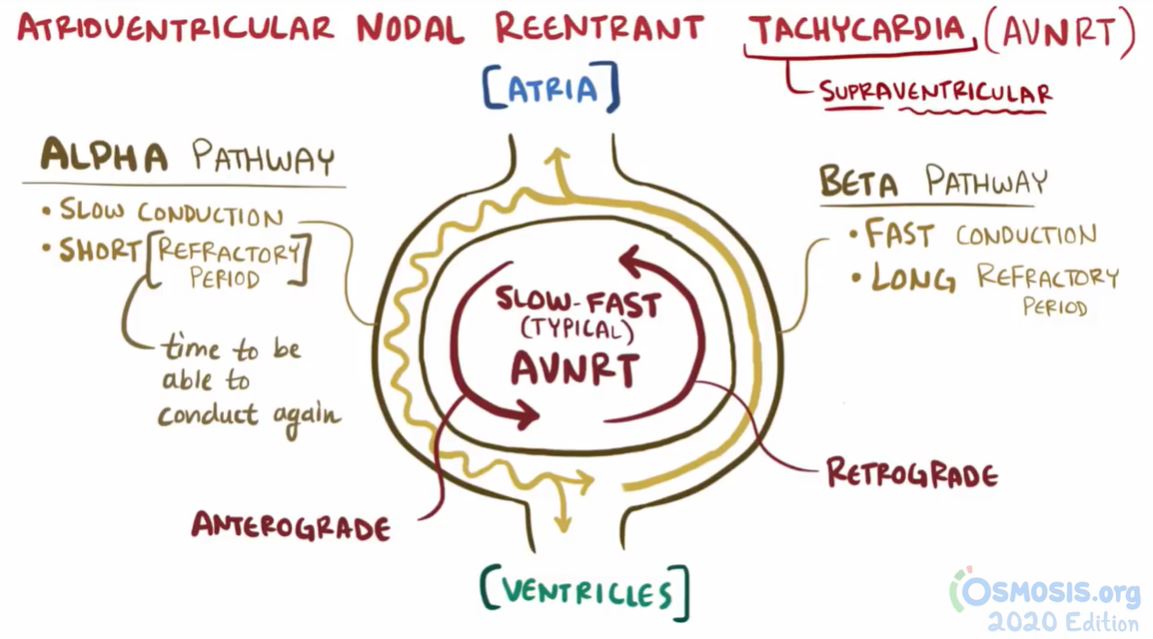 ATRIOVENTRICULAR NODAL REENTRANT TACHYCARDIA (AVNRT)
SUPRAVENTRICULAR
[ATRIA]
ALPHA PATHWAY
• SLOW CONDUCTION
• SHORT [REFRACTORY
PERIOD]
time to be
able to
conduct again
BETA PATHWAY
• FAST CONDUCTION
• LONG REFRACTORY
PERIOD
SLOW-FAST
(TYPICAL)
AVNRT
ANTEROGRADE
RETROGRADE
[VENTRICLES]
OSMOSIS.org
2020 Edition